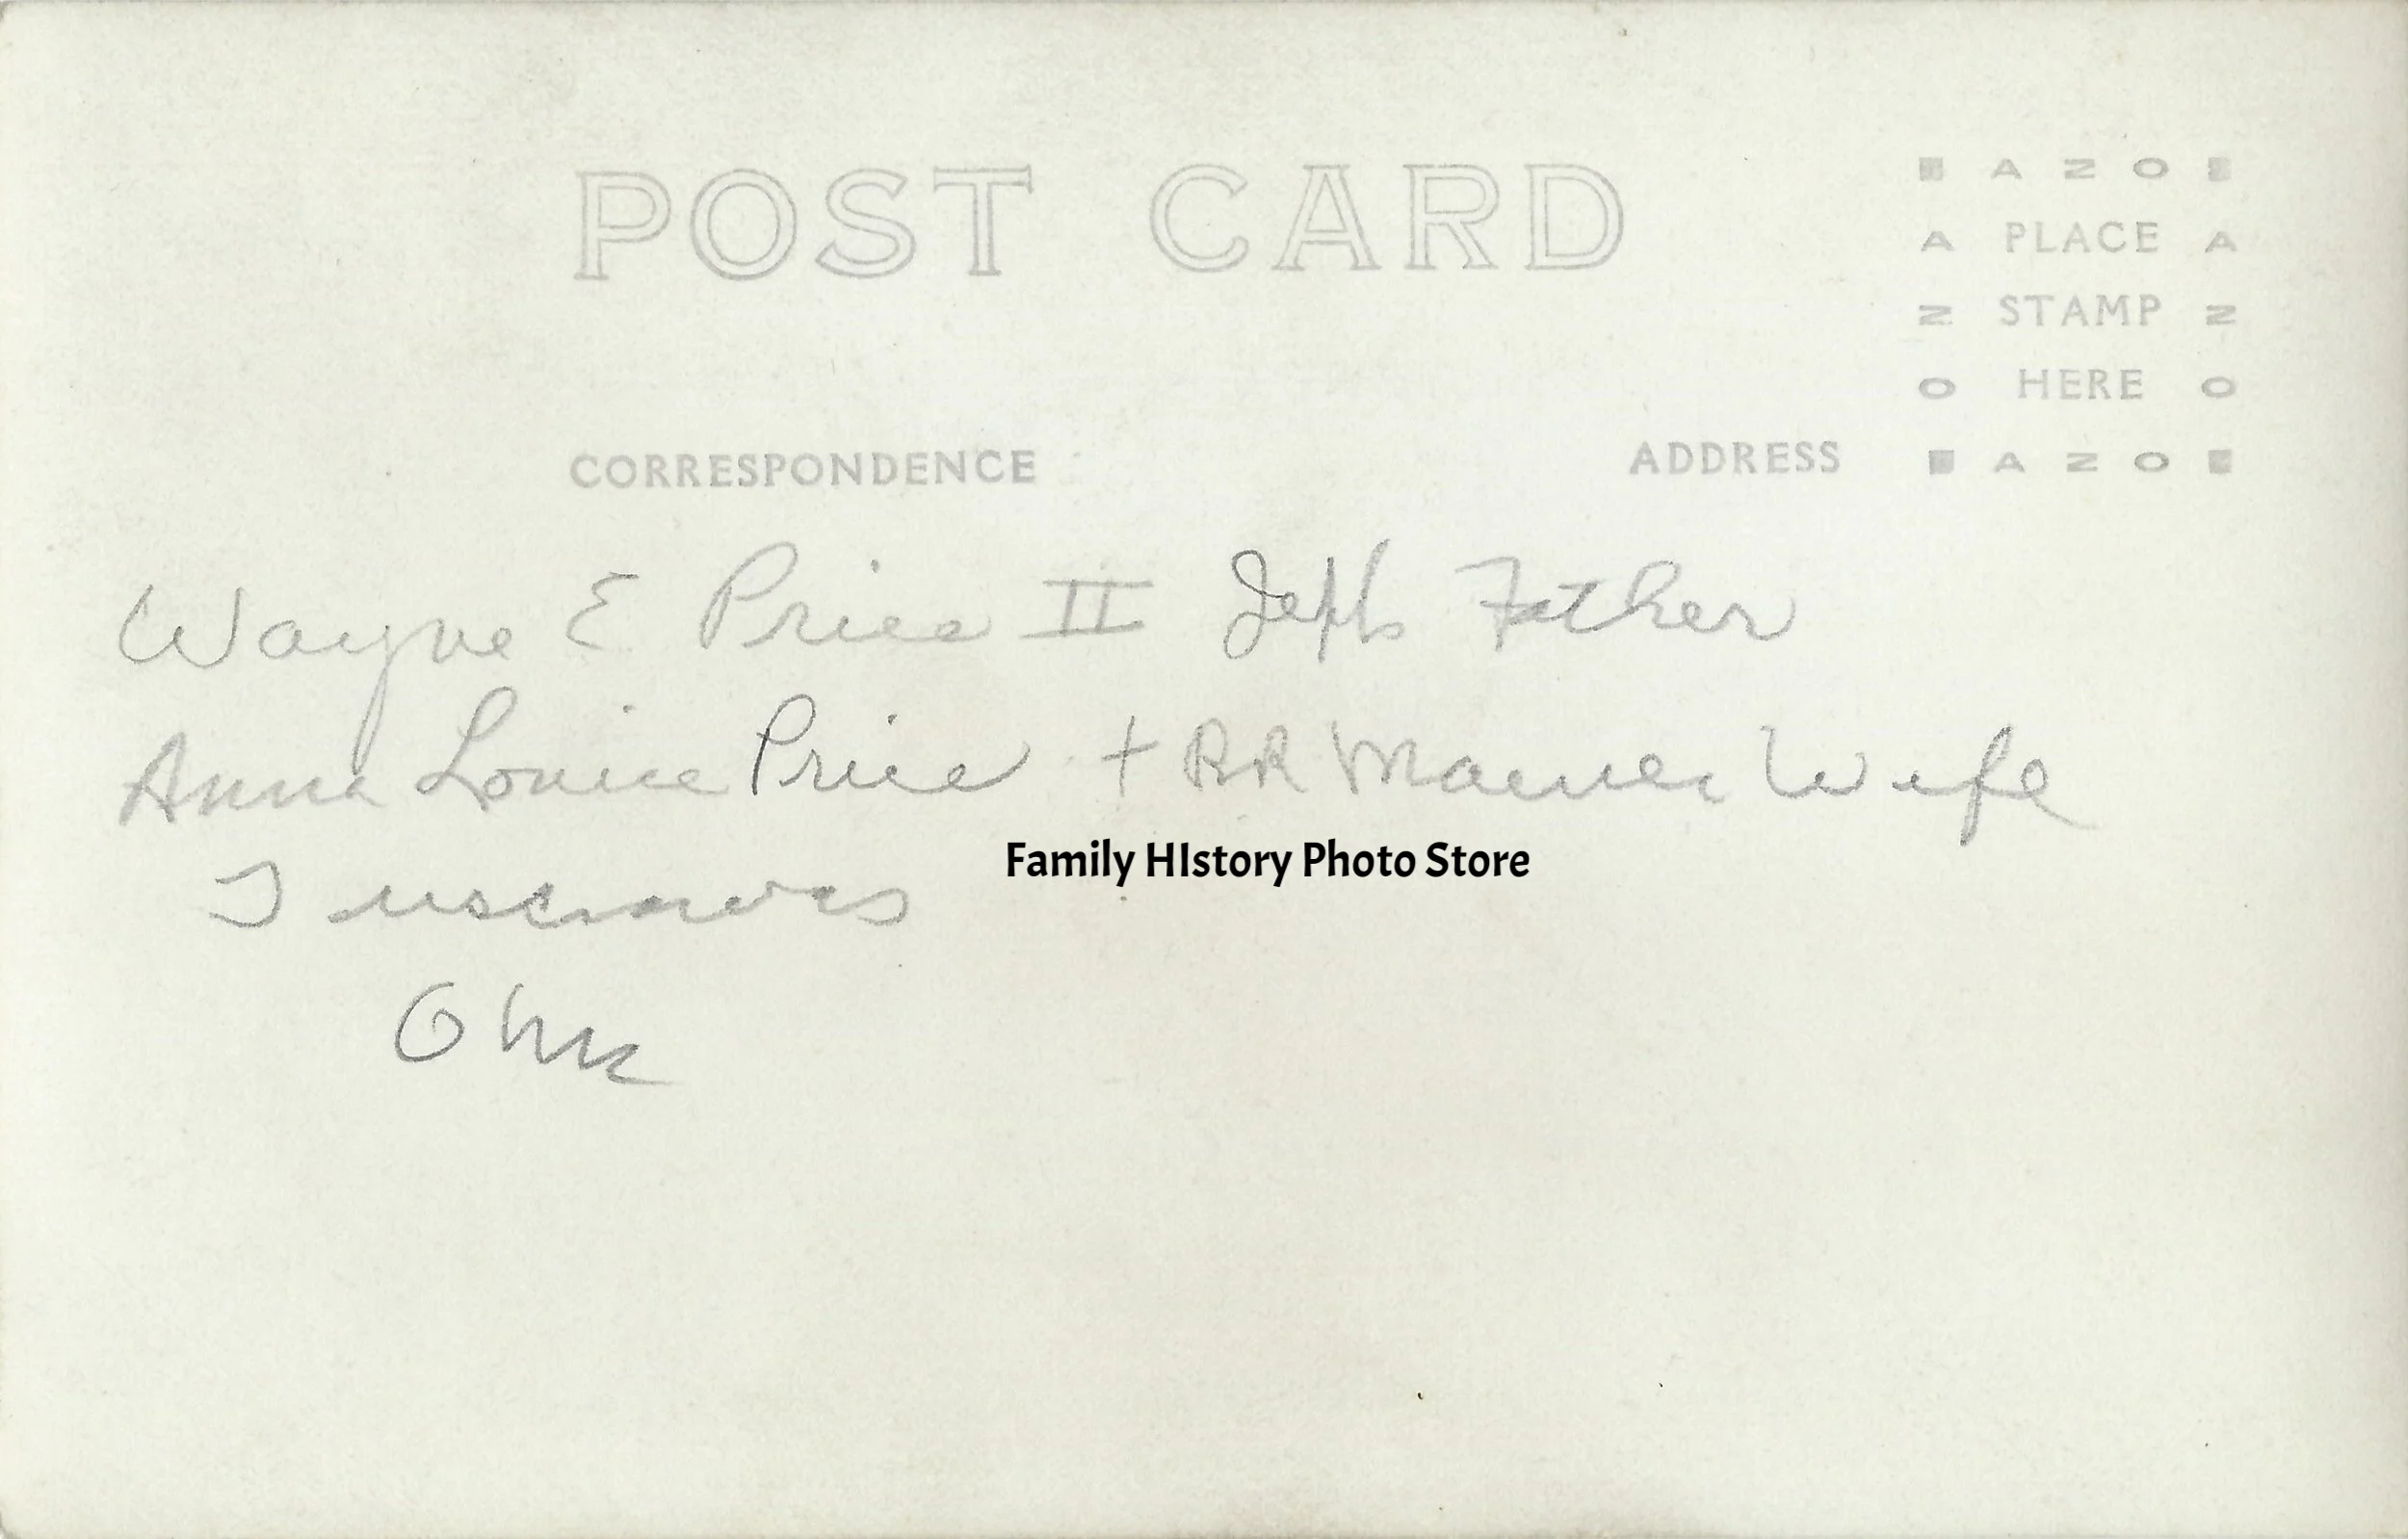 POST CARD
AZO
A PLACE A
N STAMP N
O HERE O
CORRESPONDENCE ADDRESS AZO
Wayne E Price II Jeffs Father
Anna Louise Price + RR Wife
Family HIstory Photo Store
Tuscarawas
Ohio